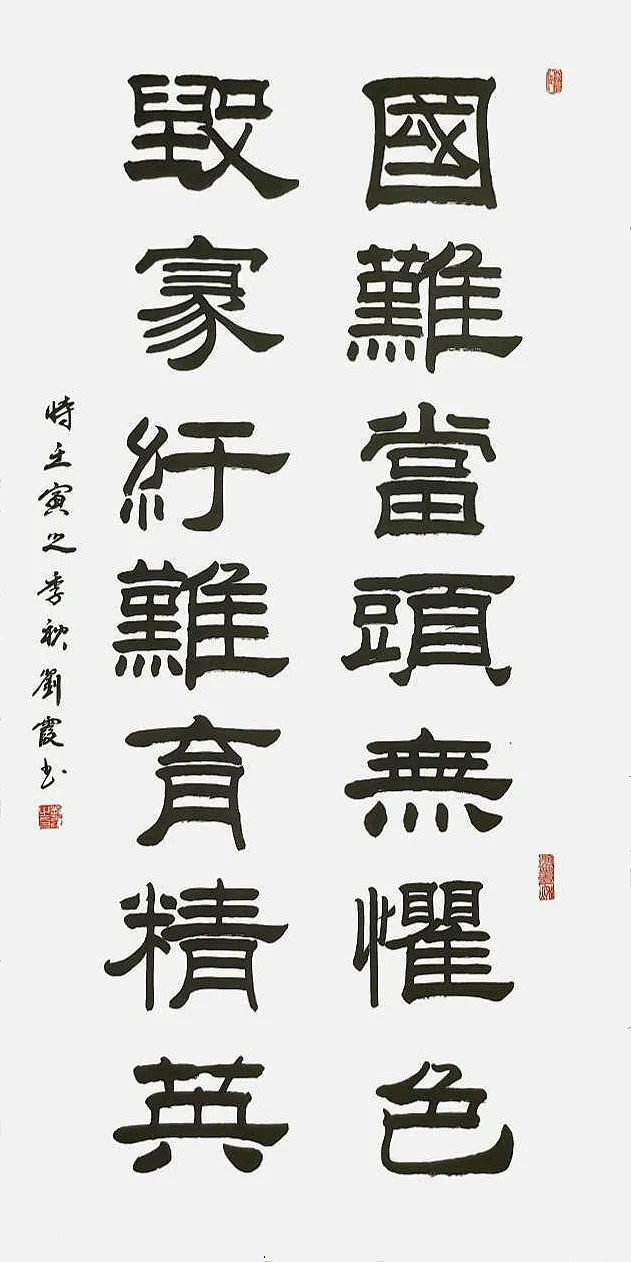 國難當頭無懼色
毀家紓難育精英
時壬寅之季秋劉霞书